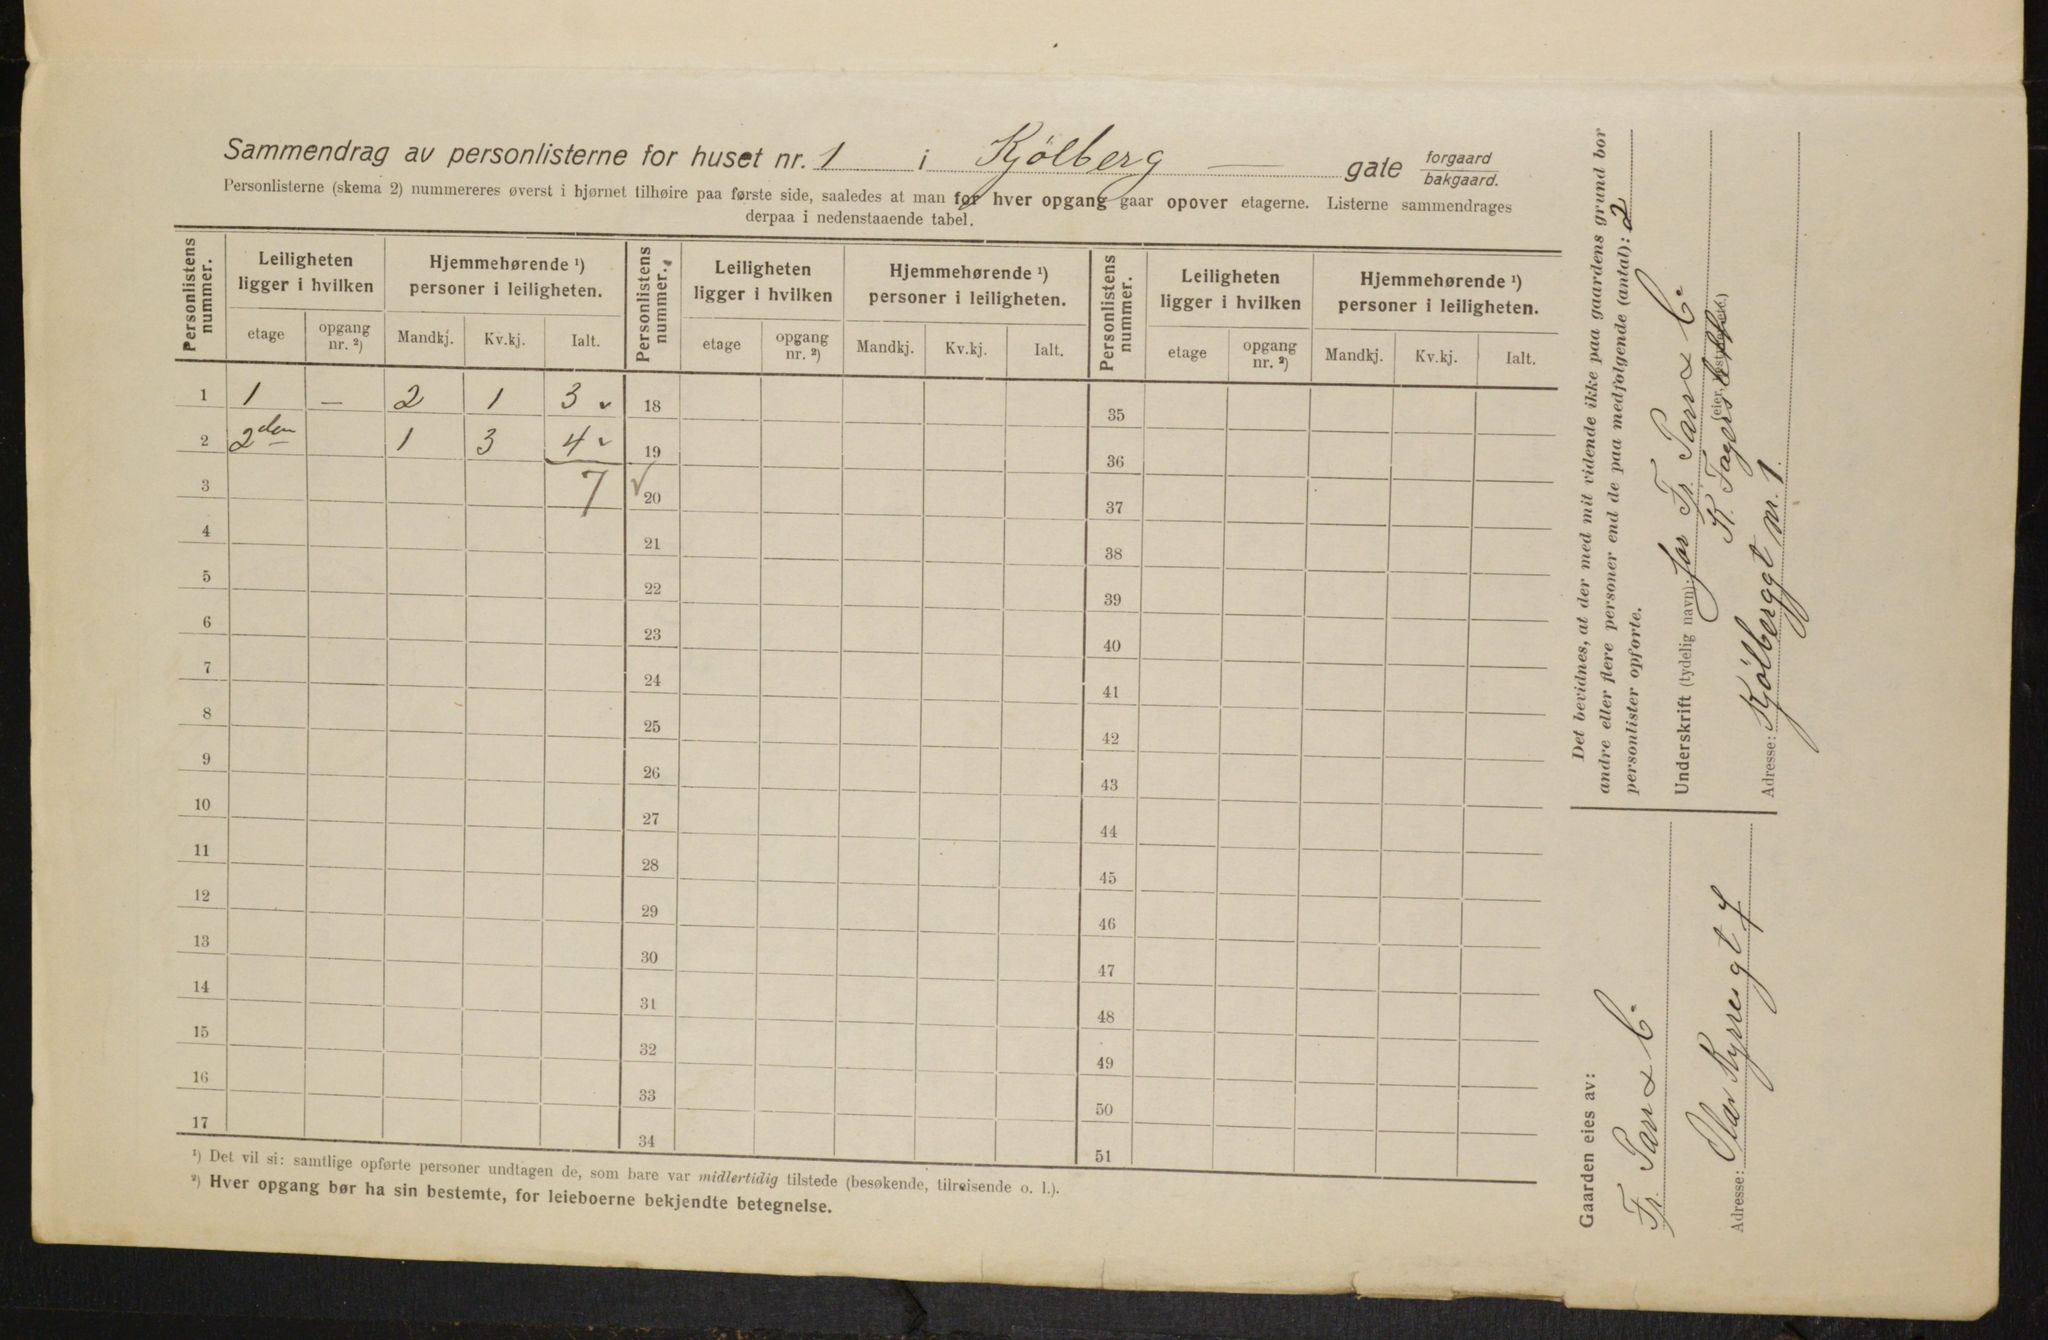 Sammendrag av personlisterne for huset nr. 1 i Kjølberg — gate forgaard
bakgaard.
Personlisterne (skema 2) nummereres øverst i hjørnet tilhøire paa første side, saaledes at man for hver opgang gaar opover etagerne. Listerne sammendrages
derpaa i nedenstaaende tabel.
Personlistens nummer. Leiligheten ligger i hvilken Hjemmehørende ¹) personer i leiligheten. Personlistens nummer. Leiligheten ligger i hvilken Hjemmehørende ¹) personer i leiligheten. Personlistens nummer. Leiligheten ligger i hvilken Hjemmehørende ¹) personer i leiligheten.
etage opgang nr. ²) Mandkj. Kv.kj. Ialt. etage opgang nr. ²) Mandkj. Kv.kj. Ialt. etage opgang nr. ²) Mandkj. Kv.kj. Ialt.
1 1 — 2 1 3 ✓ 18 35
2 2den 1 3 4 ✓ 19 36
3 7 ✓ 20 37
4 21 38
5 22 39
6 23 40
7 24 41
8 25 42
9 26 43
10 27 44
11 28 45
12 29 46
13 30 47
14 31 48
15 32 49
16 33 50
17 34 51
¹) Det vil si: samtlige opførte personer undtagen de, som bare var midlertidig tilstede (besøkende, tilreisende o. l.).
²) Hver opgang bør ha sin bestemte, for leieboerne bekjendte betegnelse.
Det bevidnes, at der med mit vidende ikke paa gaardens grund bor
andre eller flere personer end de paa medfølgende (antal): 2
personlister opførte.
Underskrift (tydelig navn): for Fr.
K.
Adresse: Kjølberggt nr. 1.
Gaarden eies av:
Fr.
Adresse: Olav Kyrresgt 7